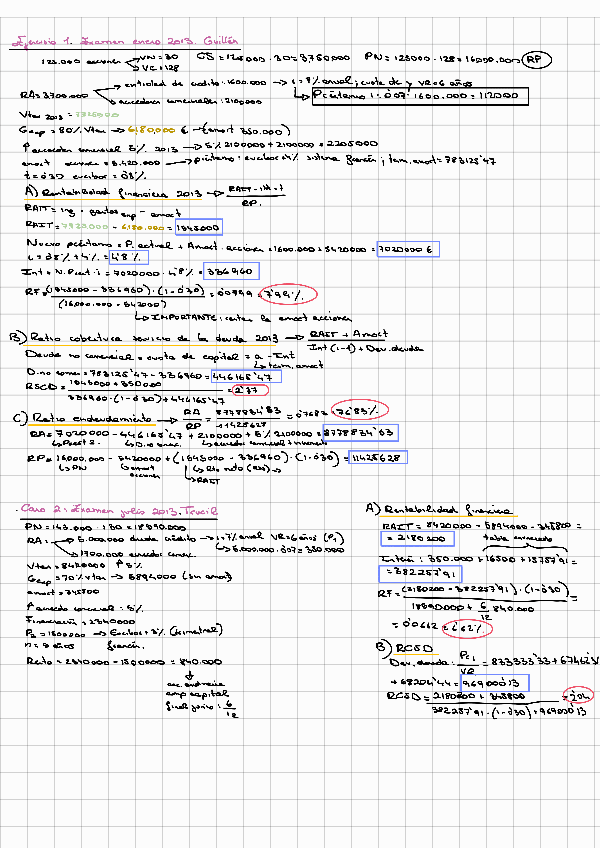 Ejercicio 1. Examen enero 2013. Guillén
125.000 acciones VN=30 CS=125000.30=3750000 PN=125000.128=16000.000 RP
VC=128
entidad de crédito:1600.000 → i=7% anual; cuota de y VR=6 años
RA=3700000 Préstamo 1: 0'07.1600.000=112000
acreedores comerciales:2100000
Vtas 2013 = 7725000
Gexp = 80% Vtas → 6.180.000 € -(amort 350.000)
↑ acreedor comercial 5% 2013 → 5% 2100000+2100000 = 2205000
amort acciones = 5.420.000 → préstamo: euribor+4% sistema francés; term. amort = 783125'47
t=0'30 euribor = 0'8%
A) Rentabilidad financiera 2013 → RAIT-Int-t
RP.
RAIT = ing - gastos exp - amort
RAIT = 7920000 - 6.180.000 = 1845000
Nuevo préstamo = P. actual + Amort. acciones = 1600.000+5420000 = 7020000 €
i = 0'8% + 4% = 4'8%
Int = N.Prest · i = 7020000 · 4'8% = 336960
RF = (1845000 - 336960) · (1-0'30) = 0'0799 = 7'99%
(16000.000 - 542000)
↳ IMPORTANTE: contar la amort acciones
B) Ratio cobertura servicio de la deuda 2013 → RAIT + Amort
Int(1-t) + Dev. deuda
Deuda no comercial = cuota de capital = a - Int
↳ term. amort
D. no comer = 783125'47 - 336960 = 446165'47
RSCD = 1845000+350000 = 2'37
336960·(1-0'30)+446165'47
C) Ratio endeudamiento → RA = 8778834'53 = 0'7683 = 76'83%
RP 11425628
RA = 7020000 - 446165'47 + 2100000 + 5% 2100000 = 8778834'53
↳ Prest 2. ↳ D. no comer. ↳ acreedor comercial +
RP = 16000.000 - 5420000 + (1845000 - 336960) · (1-0'30) = 11425628
↳ PN ↳ amort acciones ↳ Rdo neto ↳ RAIT
Caso 2: Examen julio 2013. Teruil
PN = 143.000 · 130 = 18590.000
RA: 5.000.000 deuda crédito → i=7% anual VR=6 años (P1)
↳ 5.000.000·0'07 = 350.000
1700.000 acreedor comer.
Vtas = 8420000 ↑ 5%
Gexp = 70% vtas → 5894000 (sin amort)
amort = 345800
↑ acreedor comercial: 5%
Financiación = 2340000
P2 = 1500000 → Euribor+3% (semestral)
n = 9 años francés.
Resto = 2340000 - 1500000 = 840.000
↓
acc. ordinaria
amp capital
final junio: 6/12
A) Rentabilidad financiera
RAIT = 8420000 - 5894000 - 345800 =
= 2180200
Interés: 350.000 + 16500 + 15757'91 =
= 382257'91
RF = (2180200 - 382257'91) · (1-0'30)
18590000 + 6/12 840.000
= 0'0662 = 6'62%
B) RCSD
Dev. deuda: PC1/VR = 833333'33 +
+ 68204'44 = 969000'13
RCSD = 2180200 + 345800 = 2'04
382257'91·(1-0'30)+969000'13